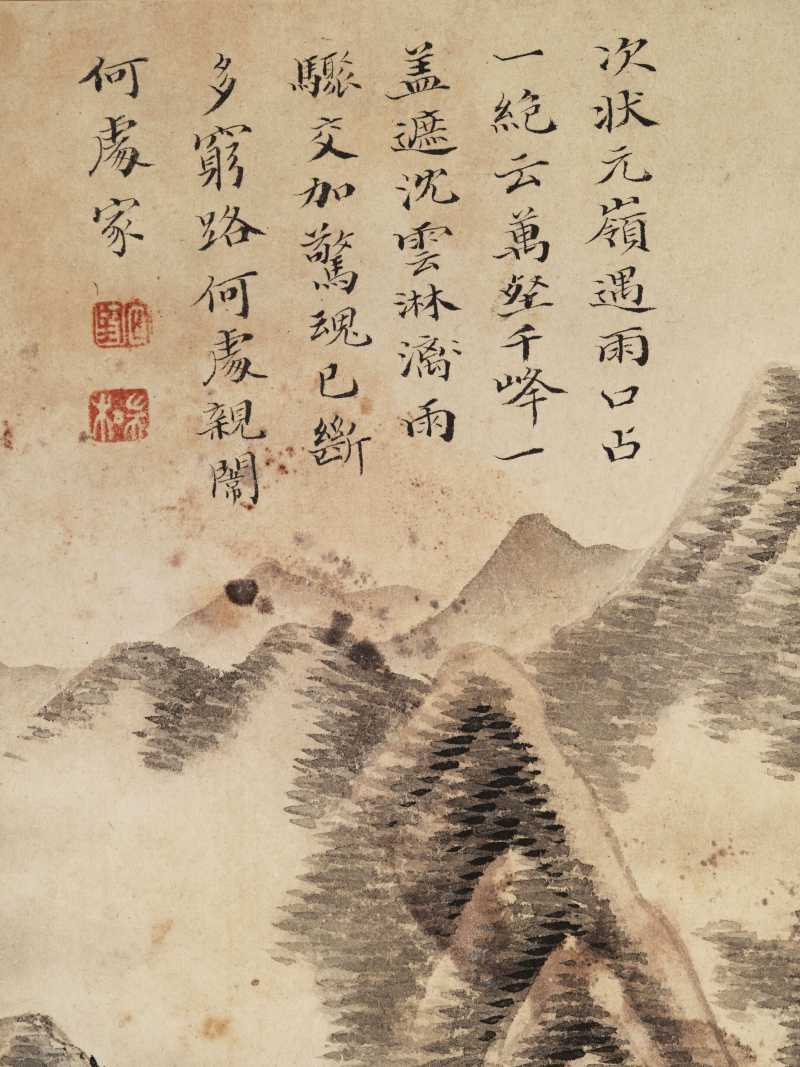 次状元嶺遇雨口占
一絶云萬壑千峰一
盖遮沈雲淋漓雨
驟交加驚魂已斷
多窮路何處親闈
何處家